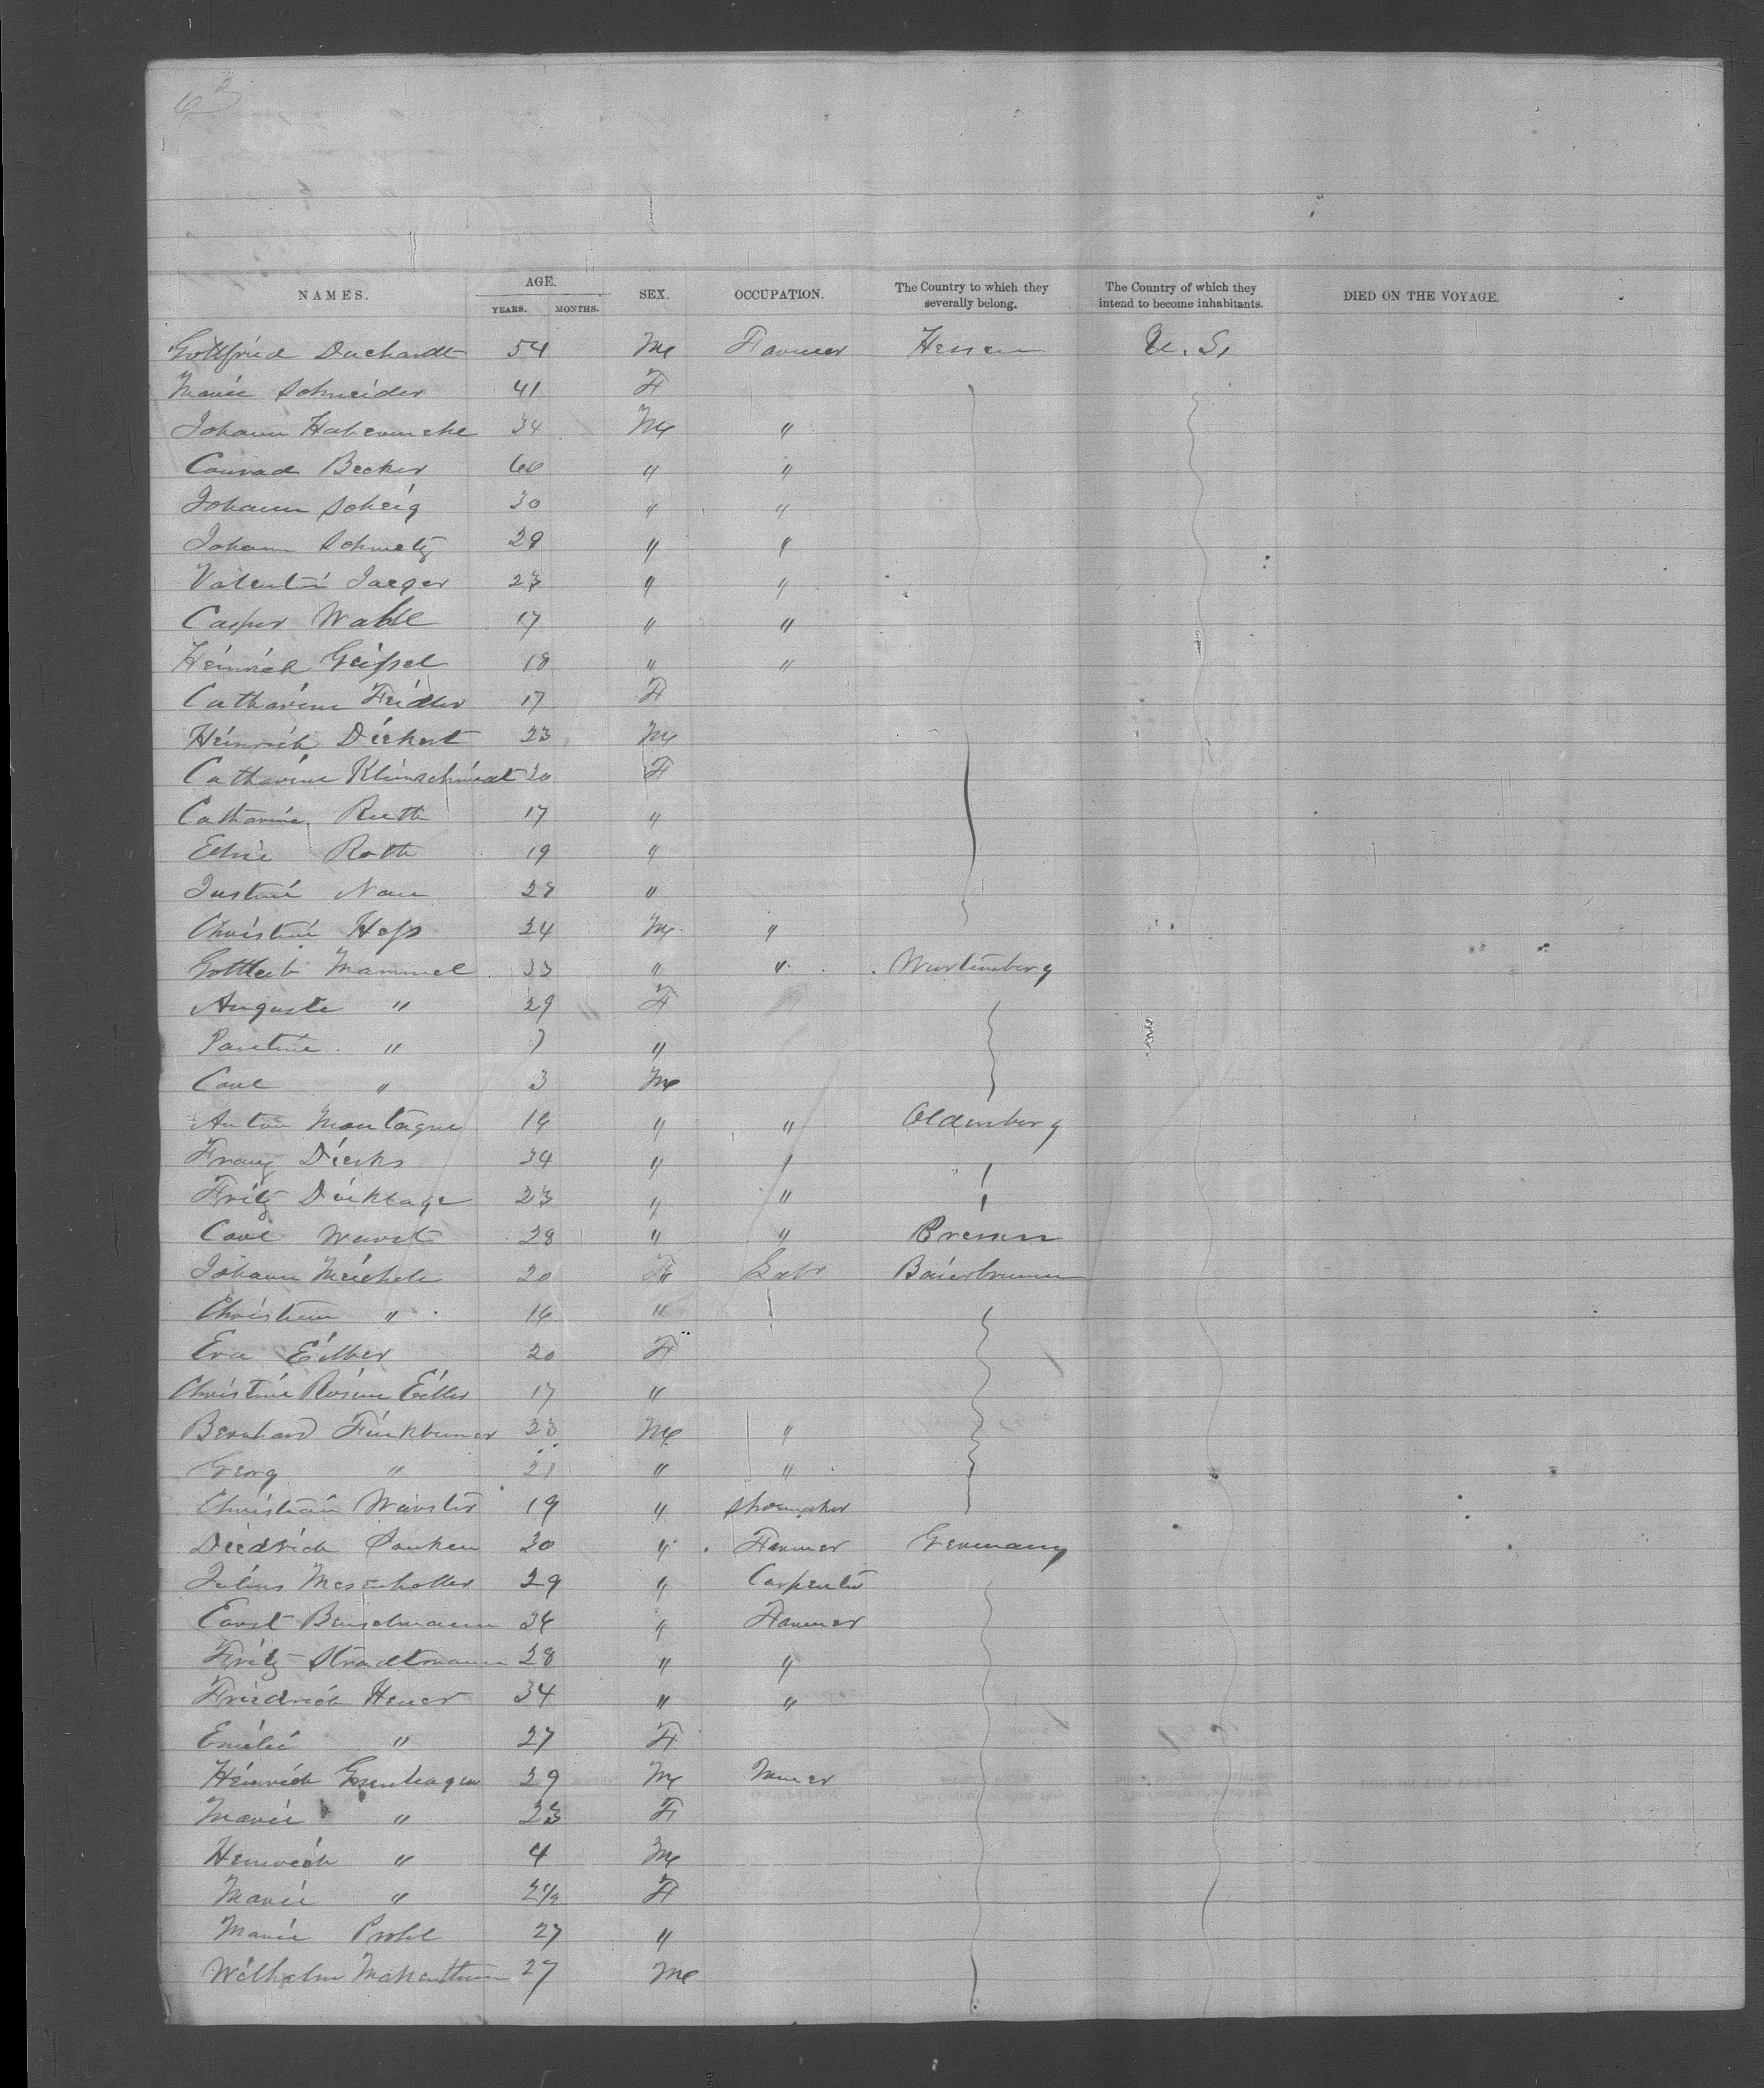 NAMES. AGE. YEARS. MONTHS. SEX. OCCUPATION. The Country to which they severally belong. The Country of which they intend to become inhabitants. DIED ON THE VOYAGE.
Gottfried Duchardt 54 M Farmer Hessen U. S.
Marie Schneider 41 F
Johann 34 M "
Conrad Becker 60 " "
Johann Scheig 30 " "
Johann Schmetz 29 " "
Valentin Jaeger 23 " "
Casper Wahl 17 " "
Heinrich Geissel 18 " "
Catharine Feidler 17 F
Heinrich Diehert 23 M
Catharine Kleinschmidt 30 F
Catharine Ruth 17 "
Elise Roth 19 "
Justine Nau 28 "
Christine Hess 24 M "
Gottlieb Mammel 33 " " Wurtemberg
Auguste " 29 F
Pauline " 7 "
Carl " 3 M
Anton Montagne 19 " " Oldenberg
Franz Dierks 34 " " "
Fritz Dinklage 23 " " "
Carl Wurst 28 " " Bremen
Johann Meichele 20 " Labr Baierbrunn
Christian " 16 "
Eva Eilber 20 F
Christine Rosine 17 "
Bernhard Finkbeiner 23 M "
Georg " 21 " "
Christian Wurster 19 " Shoemaker
Diedrich Janken 30 " Farmer Germany
Julius 29 " Carpenter
Ernst Benselmann 34 " Farmer
Fritz Stradtmann 28 " "
Friedrich Heuer 34 " "
Emilie " 27 F
Heinrich Grenhagen 29 M Miner
Marie " 23 F
Heinrich " 4 M
Marie " 2 1/2 F
Marie Prohl 27 "
Wilhelm 27 M